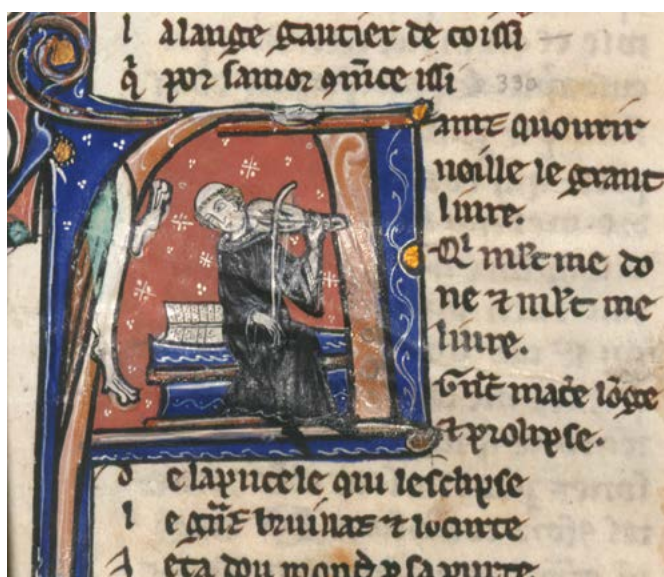 l a lange gautier de coissi
q̃ por samor 9m̃ce issi 330
ainz quourir
uoille le grant
liure.
Q̃ ml̃t me do
ne ⁊ ml̃t me
liure.
Gr̃nt mat̃e lõge
⁊ prolipse.
d e la pucele qui lesclypse
l e
A eta dou mond̃